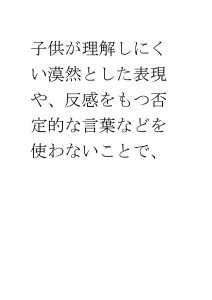 子供が理解しにく
い漠然とした表現
や、反感をもつ否
定的な言葉などを
使わないことで、